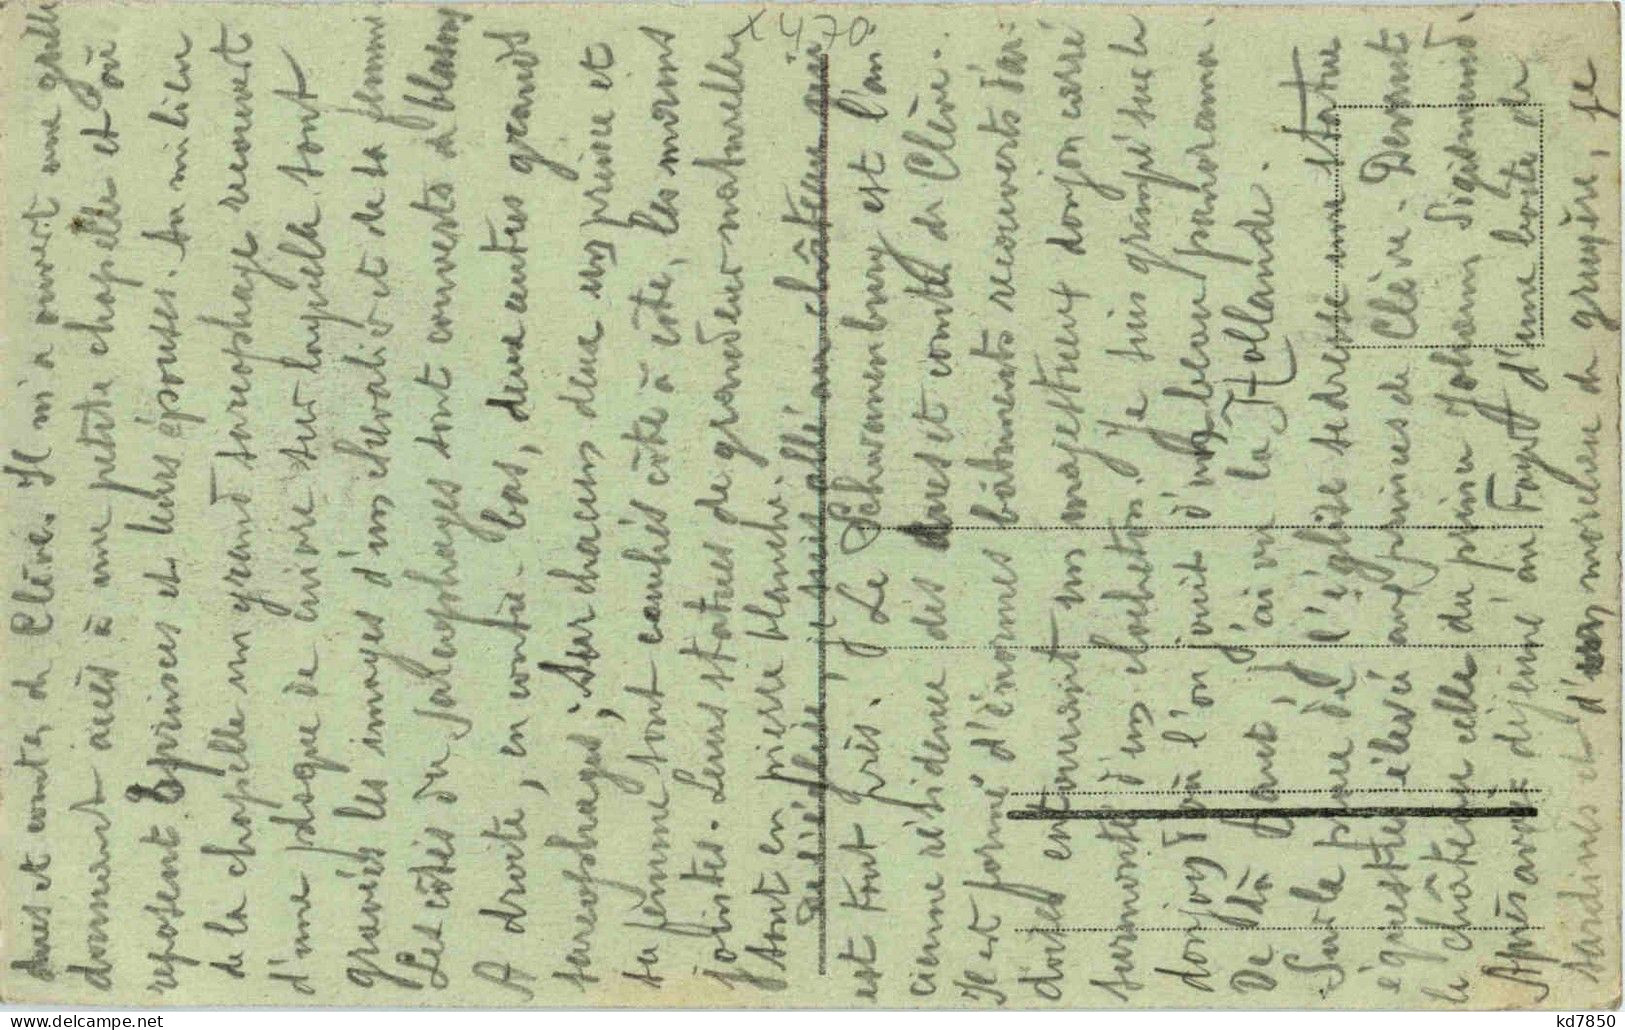 ducs et comtes de Clève. Il m'a ouvert une grille
donnant accès à une petite chapelle et où
reposent 2 princes et leurs épouses. Au milieu
de la chapelle un grand sarcophage recouvert
d'une plaque de cuivre sur laquelle sont
gravées les images d'un chevalier et de sa femme
Les côtés du sarcophages sont couverts de blasons
A droite, en contre-bas, deux autres grands
sarcophages ; sur chacun deux un prince et
sa femme sont couchés côte à côte, les mains
jointes. Leurs statues de grandeur naturelle
sont en pierre blanche.
De l'église je suis allé au château qui
est tout près. Le Schwanenburg est l'an
cienne résidence des ducs et comtes de Clève.
Il est formé d'énormes bâtiments recouverts d'ar-
doises entourant un majestueux donjon carré
surmonté d'un clocheton. Je suis grimpé sur le
donjon d'où l'on jouit d'un beau panorama.
De là haut, j'ai vu la Hollande.
Sur la place de l'église se dresse une statue
équestre élevée aux princes de Clève. Devant
le château celle du prince Johann Sigismund.
Après avoir déjeuné au Foyer d'une boîte de
sardines et d'un morceau de gruyère, je
x 470
kd7850